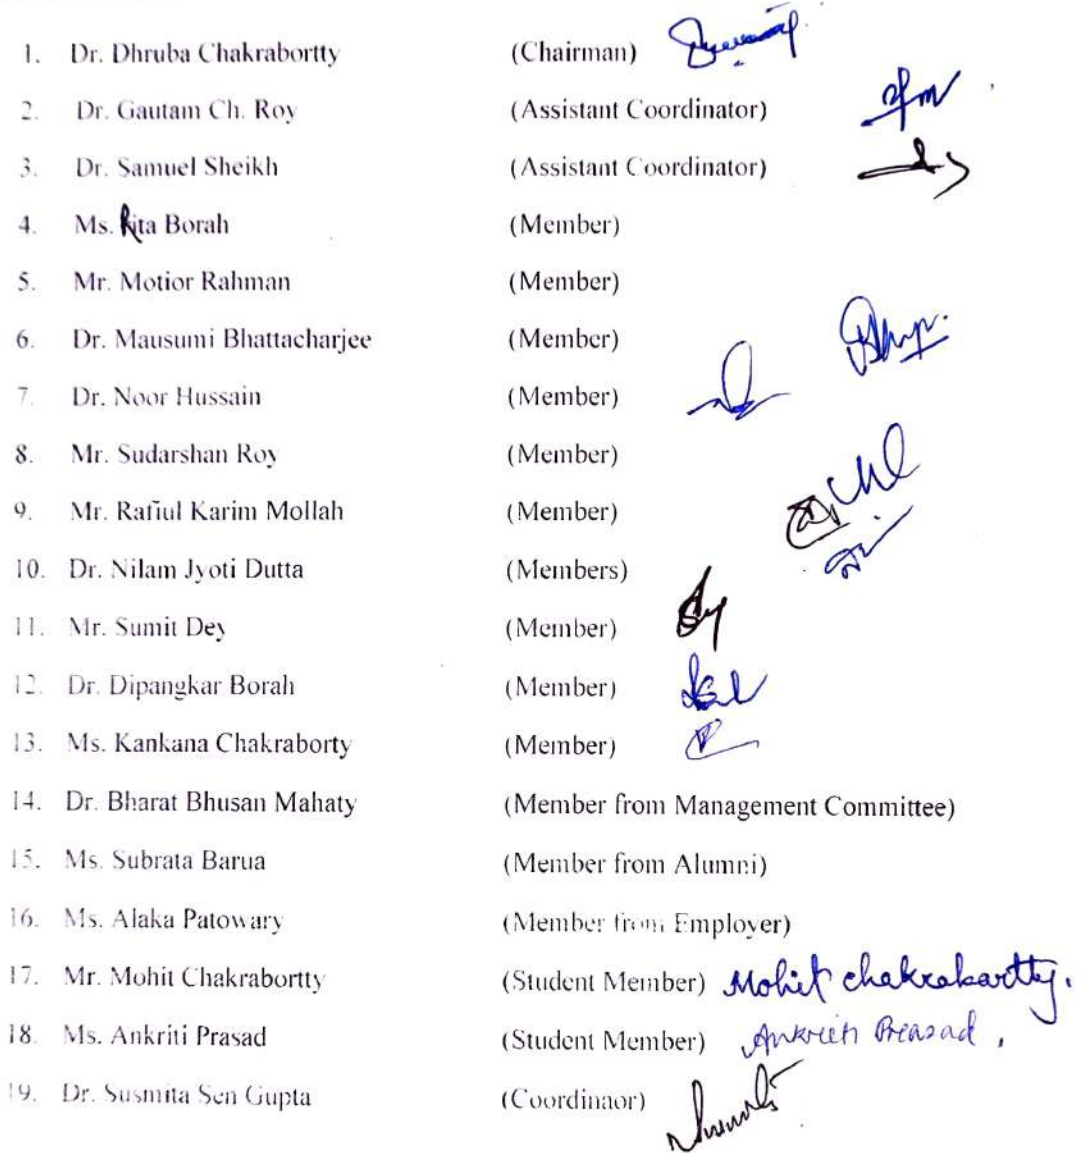 1. Dr. Dhruba Chakrabortty (Chairman)
2. Dr. Gautam Ch. Roy (Assistant Coordinator)
3. Dr. Samuel Sheikh (Assistant Coordinator)
4. Ms. Rita Borah (Member)
5. Mr. Motior Rahman (Member)
6. Dr. Mausumi Bhattacharjee (Member)
7. Dr. Noor Hussain (Member)
8. Mr. Sudarshan Roy (Member)
9. Mr. Rafiul Karim Mollah (Member)
10. Dr. Nilam Jyoti Dutta (Members)
11. Mr. Sumit Dey (Member)
12. Dr. Dipangkar Borah (Member)
13. Ms. Kankana Chakraborty (Member)
14. Dr. Bharat Bhusan Mahaty (Member from Management Committee)
15. Ms. Subrata Barua (Member from Alumni)
16. Ms. Alaka Patowary (Member from Employer)
17. Mr. Mohit Chakrabortty (Student Member) Mohit Chakrabartty.
18. Ms. Ankriti Prasad (Student Member) Ankriti Prasad,
19. Dr. Susmita Sen Gupta (Coordinaor)